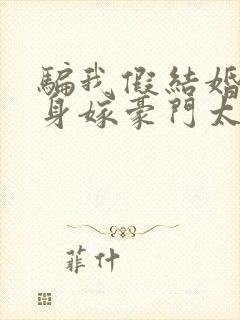 騙我假結婚
身嫁豪門太
菲什